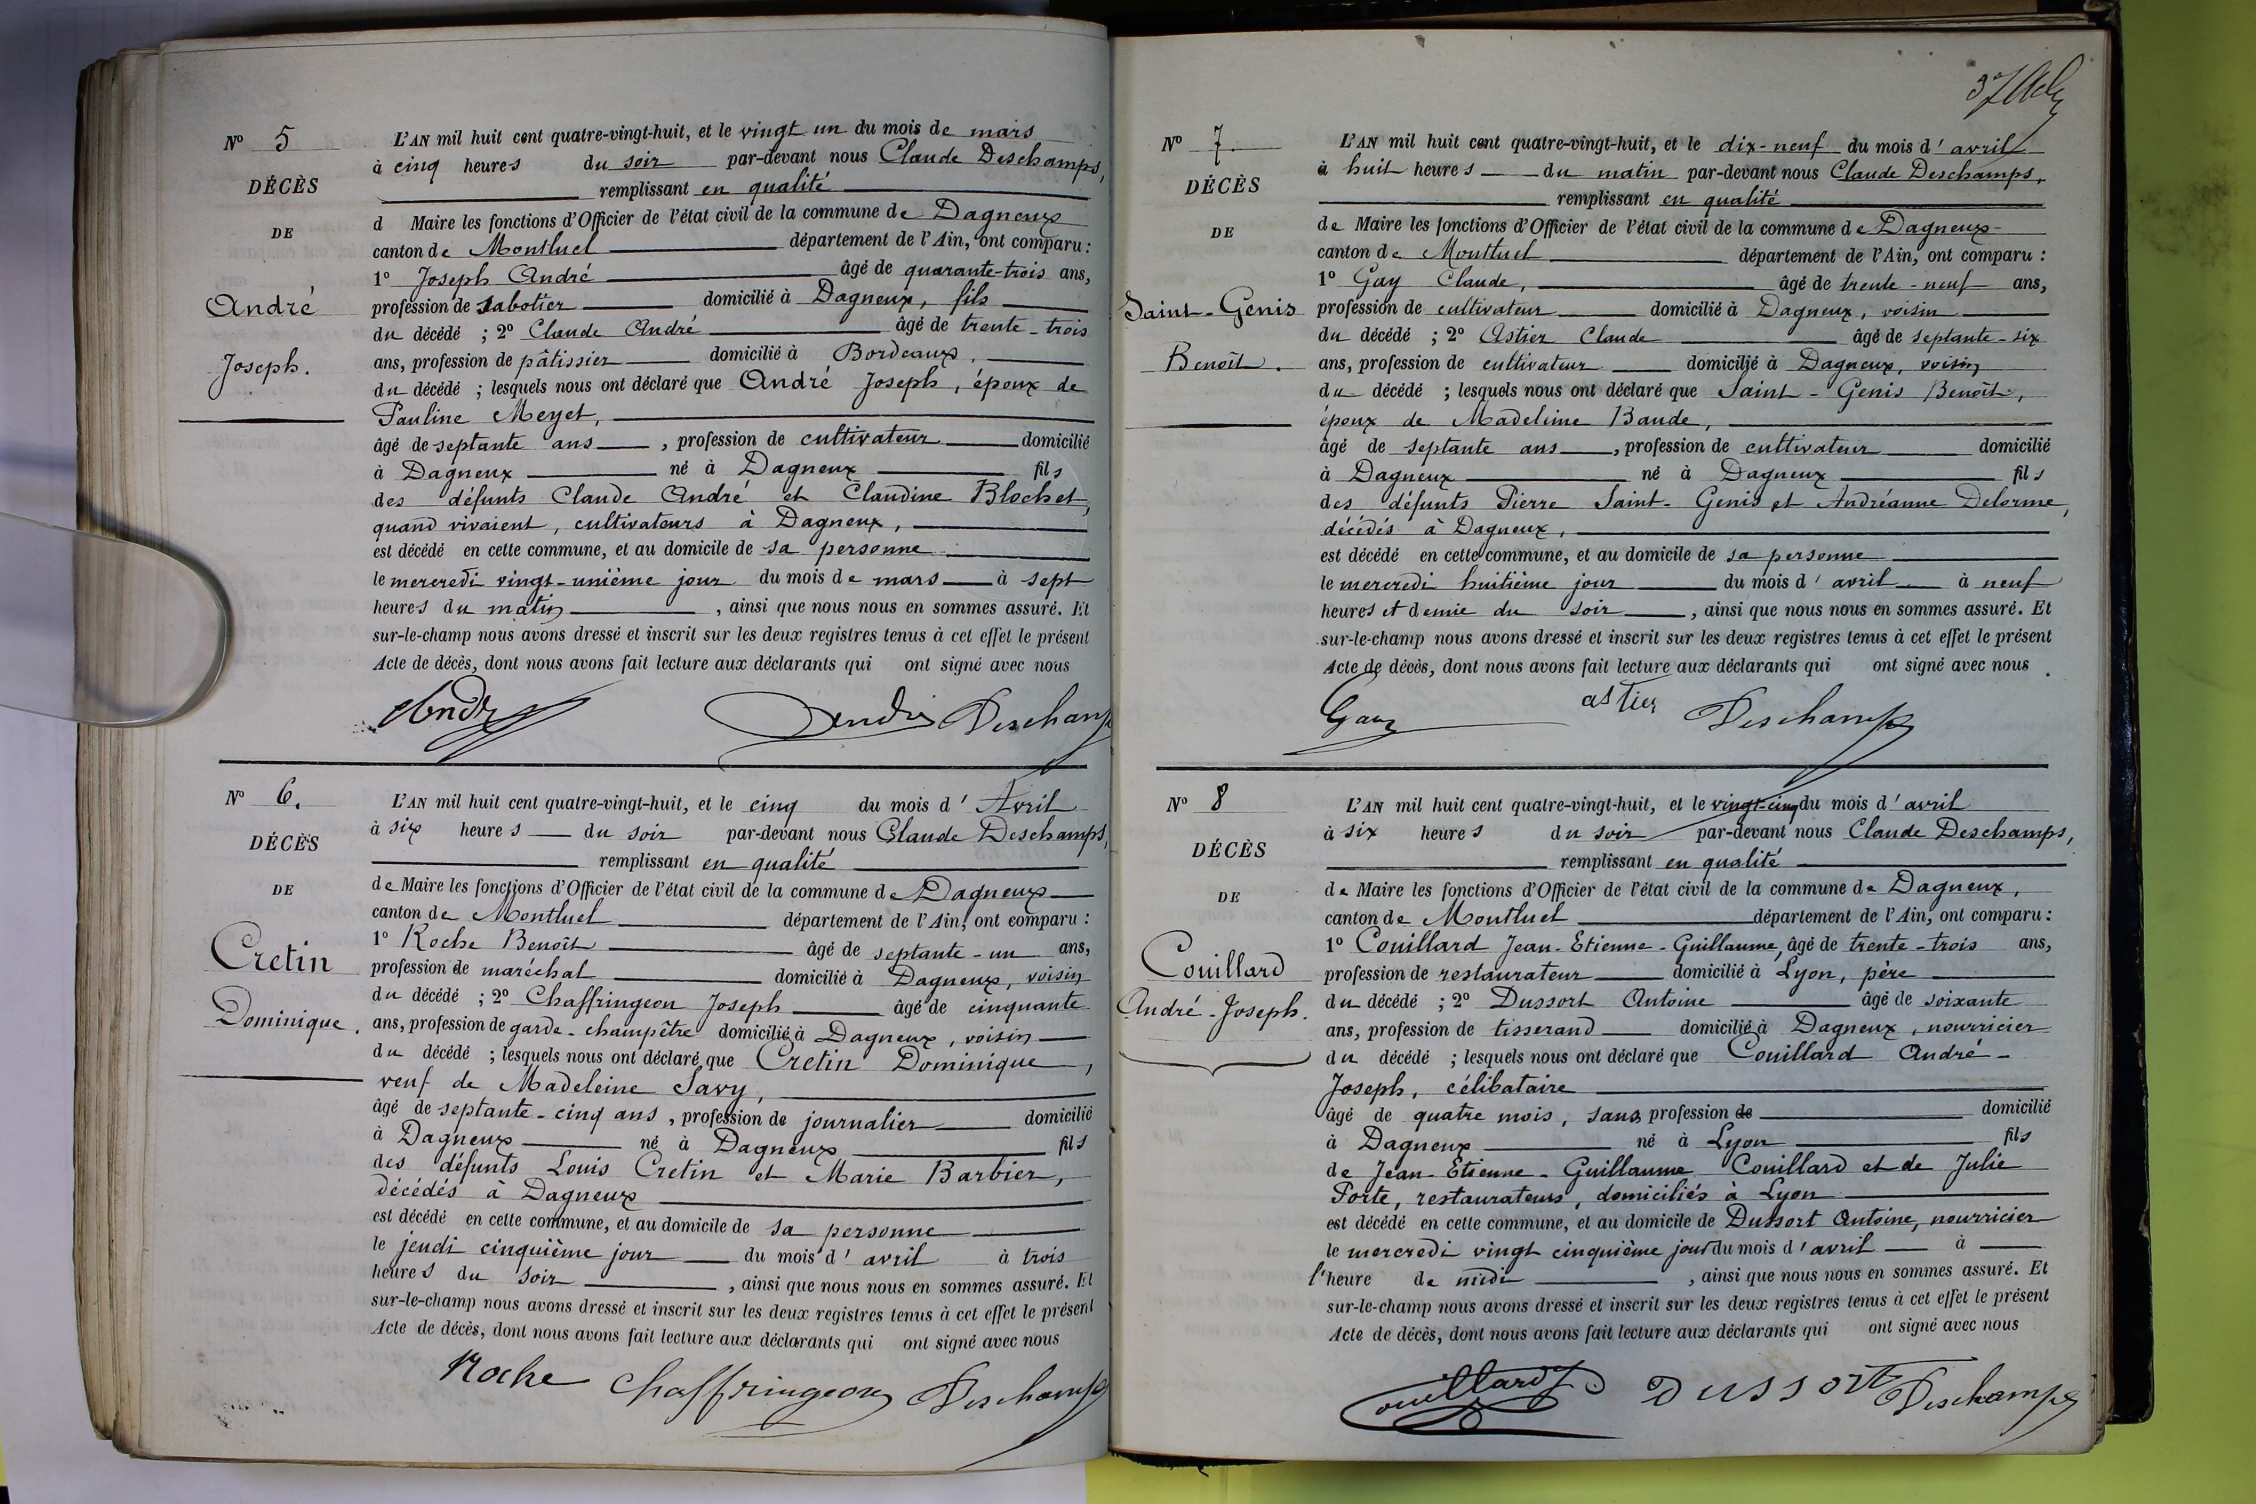 Nº 5
DÉCÈS
DE
André
Joseph.
L'AN mil huit cent quatre-vingt-huit, et le vingt un du mois de mars
à cinq heures du soir par-devant nous Claude Deschamps,
remplissant en qualité
d Maire les fonctions d'Officier de l'état civil de la commune de Dagneux
canton de Montluel département de l'Ain, ont comparu :
1º Joseph André âgé de quarante-trois ans,
profession de sabotier domicilié à Dagneux, fils
du décédé ; 2º Claude André âgé de trente-trois
ans, profession de pâtissier domicilié à Bordeaux,
du décédé ; lesquels nous ont déclaré que André Joseph, époux de
Pauline Meyet,
âgé de septante ans, profession de cultivateur domicilié
à Dagneux né à Dagneux fils
des défunts Claude André et Claudine Blochet,
quand vivaient, cultivateurs à Dagneux,
est décédé en cette commune, et au domicile de sa personne
le mercredi vingt-unième jour du mois de mars à sept
heures du matin, ainsi que nous nous en sommes assuré. Et
sur-le-champ nous avons dressé et inscrit sur les deux registres tenus à cet effet le présent
Acte de décès, dont nous avons fait lecture aux déclarants qui ont signé avec nous
André André Deschamps
Nº 6.
DÉCÈS
DE
Cretin
Dominique.
L'AN mil huit cent quatre-vingt-huit, et le cinq du mois d' Avril
à six heures du soir par-devant nous Claude Deschamps,
remplissant en qualité
de Maire les fonctions d'Officier de l'état civil de la commune de Dagneux
canton de Montluel département de l'Ain, ont comparu :
1º Roche Benoît âgé de septante-un ans,
profession de maréchal domicilié à Dagneux, voisin
du décédé ; 2º Chaffringeon Joseph âgé de cinquante
ans, profession de garde-champêtre domicilié à Dagneux, voisin
du décédé ; lesquels nous ont déclaré que Cretin Dominique,
veuf de Madeleine Savy,
âgé de septante-cinq ans, profession de journalier domicilié
à Dagneux né à Dagneux fils
des défunts Louis Cretin et Marie Barbier,
décédés à Dagneux
est décédé en cette commune, et au domicile de sa personne
le jeudi cinquième jour du mois d' avril à trois
heures du soir, ainsi que nous nous en sommes assuré. Et
sur-le-champ nous avons dressé et inscrit sur les deux registres tenus à cet effet le présent
Acte de décès, dont nous avons fait lecture aux déclarants qui ont signé avec nous
Roche Chaffringeon Deschamps
37
Nº 7.
DÉCÈS
DE
Saint-Genis
Benoît.
L'AN mil huit cent quatre-vingt-huit, et le dix-neuf du mois d' avril
à huit heures du matin par-devant nous Claude Deschamps,
remplissant en qualité
de Maire les fonctions d'Officier de l'état civil de la commune de Dagneux
canton de Montluel département de l'Ain, ont comparu :
1º Gay Claude, âgé de trente-neuf ans,
profession de cultivateur domicilié à Dagneux, voisin
du décédé ; 2º Astier Claude âgé de septante-six
ans, profession de cultivateur domicilié à Dagneux, voisin
du décédé ; lesquels nous ont déclaré que Saint-Genis Benoît,
époux de Madeleine Baude,
âgé de septante ans, profession de cultivateur domicilié
à Dagneux né à Dagneux fils
des défunts Pierre Saint-Genis et Andréanne Delorme,
décédés à Dagneux,
est décédé en cette commune, et au domicile de sa personne
le mercredi huitième jour du mois d' avril à neuf
heures et demie du soir, ainsi que nous nous en sommes assuré. Et
sur-le-champ nous avons dressé et inscrit sur les deux registres tenus à cet effet le présent
Acte de décès, dont nous avons fait lecture aux déclarants qui ont signé avec nous.
Gay astier Deschamps
Nº 8
DÉCÈS
DE
Couillard
André-Joseph.
L'AN mil huit cent quatre-vingt-huit, et le vingt-cinq du mois d' avril
à six heures du soir par-devant nous Claude Deschamps,
remplissant en qualité
de Maire les fonctions d'Officier de l'état civil de la commune de Dagneux,
canton de Montluel département de l'Ain, ont comparu :
1º Couillard Jean-Etienne-Guillaume, âgé de trente-trois ans,
profession de restaurateur domicilié à Lyon, père
du décédé ; 2º Dussort Antoine âgé de soixante
ans, profession de tisserand domicilié à Dagneux, nourricier
du décédé ; lesquels nous ont déclaré que Couillard André-
Joseph, célibataire
âgé de quatre mois, sans profession de domicilié
à Dagneux né à Lyon fils
de Jean-Etienne-Guillaume Couillard et de Julie
Porte, restaurateurs, domiciliés à Lyon
est décédé en cette commune, et au domicile de Dussort Antoine, nourricier
le mercredi vingt cinquième jour du mois d' avril à
l'heure de midi, ainsi que nous nous en sommes assuré. Et
sur-le-champ nous avons dressé et inscrit sur les deux registres tenus à cet effet le présent
Acte de décès, dont nous avons fait lecture aux déclarants qui ont signé avec nous
Couillard DUSSORT Deschamps